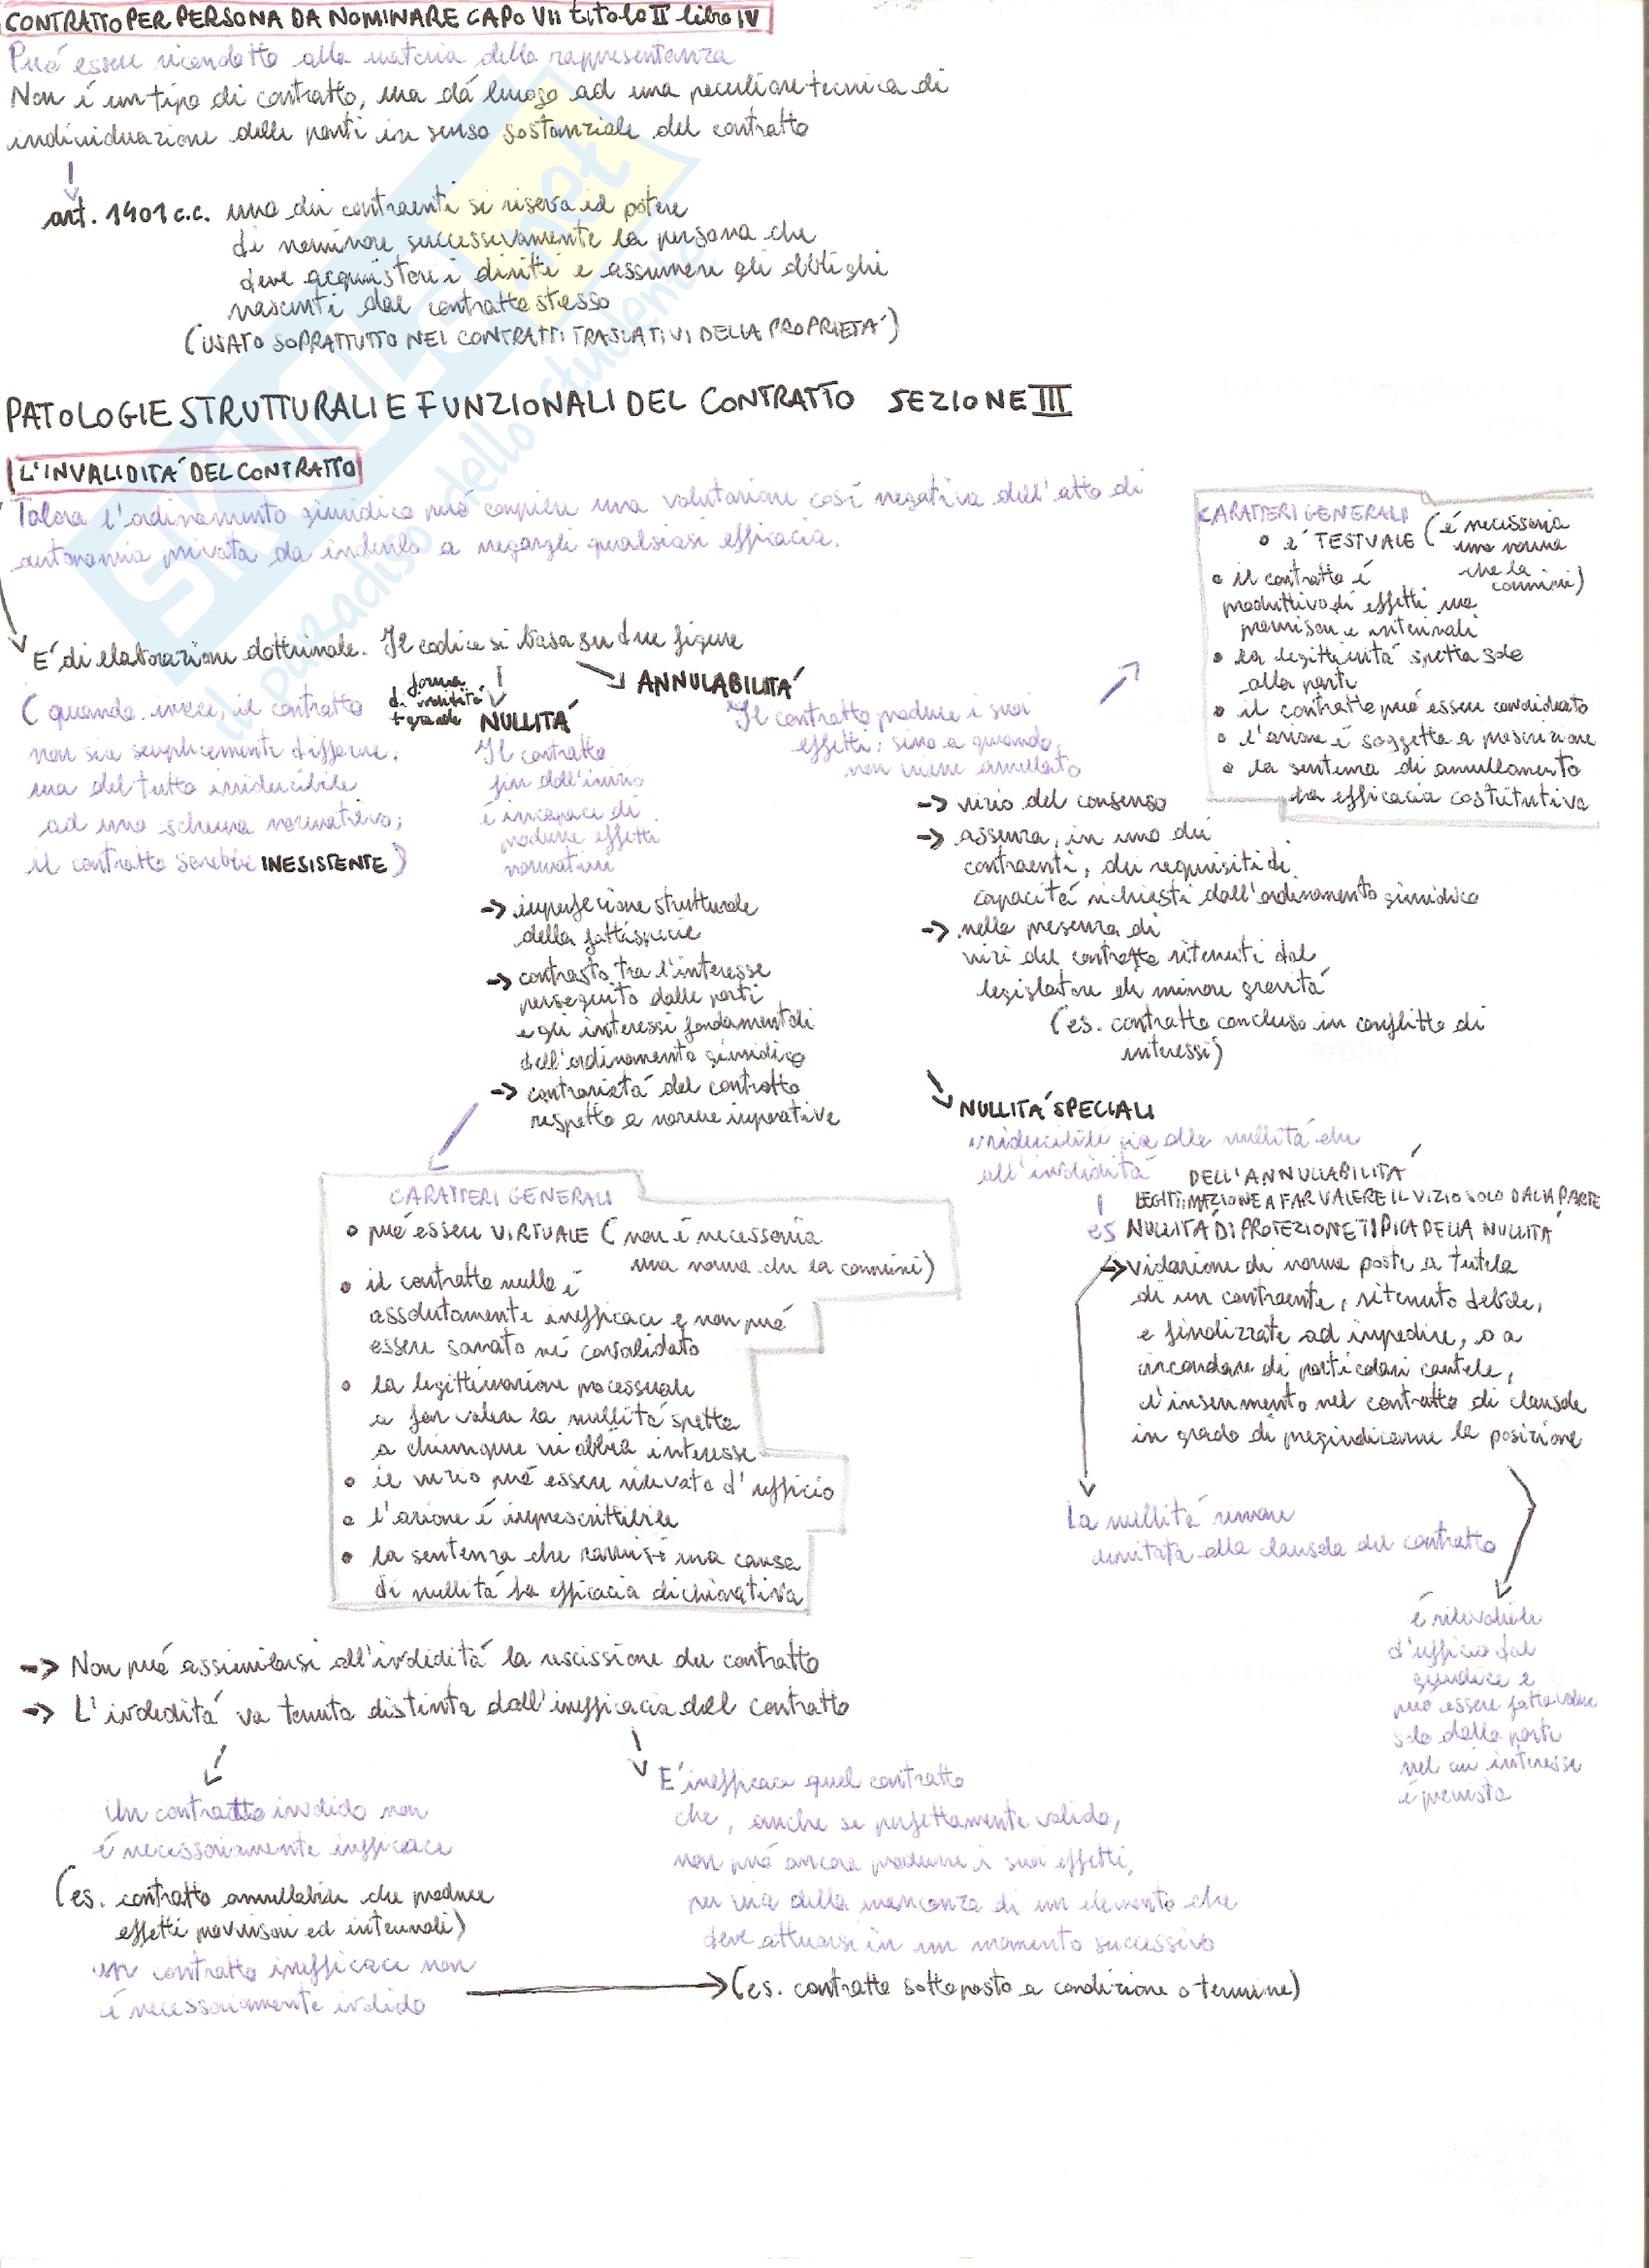 CONTRATTO PER PERSONA DA NOMINARE CAPO VII titolo II libro IV
Può essere ricondotto alla materia della rappresentanza
Non è un tipo di contratto, ma dà luogo ad una peculiare tecnica di
individuazione delle parti in senso sostanziale del contratto
art. 1401 c.c. uno dei contraenti si riserva il potere
di nominare successivamente la persona che
deve acquistare i diritti e assumere gli obblighi
nascenti dal contratto stesso
(USATO SOPRATTUTTO NEI CONTRATTI TRASLATIVI DELLA PROPRIETA')
PATOLOGIE STRUTTURALI E FUNZIONALI DEL CONTRATTO SEZIONE III
L'INVALIDITA' DEL CONTRATTO
Talora l'ordinamento giuridico può compiere una valutazione così negativa dell'atto di
autonomia privata da indurlo a negargli qualsiasi efficacia.
E' di elaborazione dottrinale. Il codice si basa su due figure
(quando invece, il contratto
non sia semplicemente difforme,
ma del tutto irriducibile
ad uno schema normativo;
il contratto sarebbe INESISTENTE)
forma
di invalidità
+ grande
NULLITA'
Il contratto
fin dall'inizio
è incapace di
produrre effetti
normativi
-> imperfezione strutturale
della fattispecie
-> contrasto tra l'interesse
perseguito dalle parti
e gli interessi fondamentali
dell'ordinamento giuridico
-> contrarietà del contratto
rispetto a norme imperative
CARATTERI GENERALI
• può essere VIRTUALE (non è necessaria
una norma che la commini)
• il contratto nullo è
assolutamente inefficace e non può
essere sanato né convalidato
• la legittimazione processuale
a far valere la nullità spetta
a chiunque vi abbia interesse
• il vizio può essere rilevato d'ufficio
• l'azione è imprescrittibile
• la sentenza che ravvisi una causa
di nullità ha efficacia dichiarativa
ANNULABILITA'
Il contratto produce i suoi
effetti: sino a quando
non viene annullato
-> vizio del consenso
-> assenza, in uno dei
contraenti, dei requisiti di
capacità richiesti dall'ordinamento giuridico
-> nella presenza di
vizi del contratto ritenuti dal
legislatore di minore gravità
(es. contratto concluso in conflitto di
interessi)
CARATTERI GENERALI
• e' TESTUALE (è necessaria
una norma
che la
commini)
• il contratto è
produttivo di effetti ma
provvisori e interinali
• la legittimità spetta solo
alla parti
• il contratto può essere convalidato
• l'azione è soggetta a prescrizione
• la sentenza di annullamento
ha efficacia costitutiva
NULLITA' SPECIALI
irriducibili sia alla nullità che
all'invalidità
DELL'ANNULLABILITA'
LEGITTIMAZIONE A FAR VALERE IL VIZIO SOLO DALLA PARTE
es NULLITA' DI PROTEZIONE TIPICA DELLA NULLITA'
-> violazione di norme poste a tutela
di un contraente, ritenuto debole,
e finalizzate ad impedire, o a
circondare di particolari cautele,
l'inserimento nel contratto di clausole
in grado di pregiudicarne la posizione
La nullità rimane
limitata alla clausola del contratto
è rilevabile
d'ufficio dal
giudice e
può essere fatta valere
solo dalla parte
nel cui interesse
è prevista
-> Non può assimilarsi all'invalidità la rescissione del contratto
-> L'invalidità va tenuta distinta dall'inefficacia del contratto
Un contratto invalido non
è necessariamente inefficace
(es. contratto annullabile che produce
effetti provvisori ed interinali)
un contratto inefficace non
è necessariamente invalido
E' inefficace quel contratto
che, anche se perfettamente valido,
non può ancora produrre i suoi effetti,
per via della mancanza di un elemento che
deve attuarsi in un momento successivo
(es. contratto sottoposto a condizione o termine)
SKUOLA.net
il paradiso dello studente